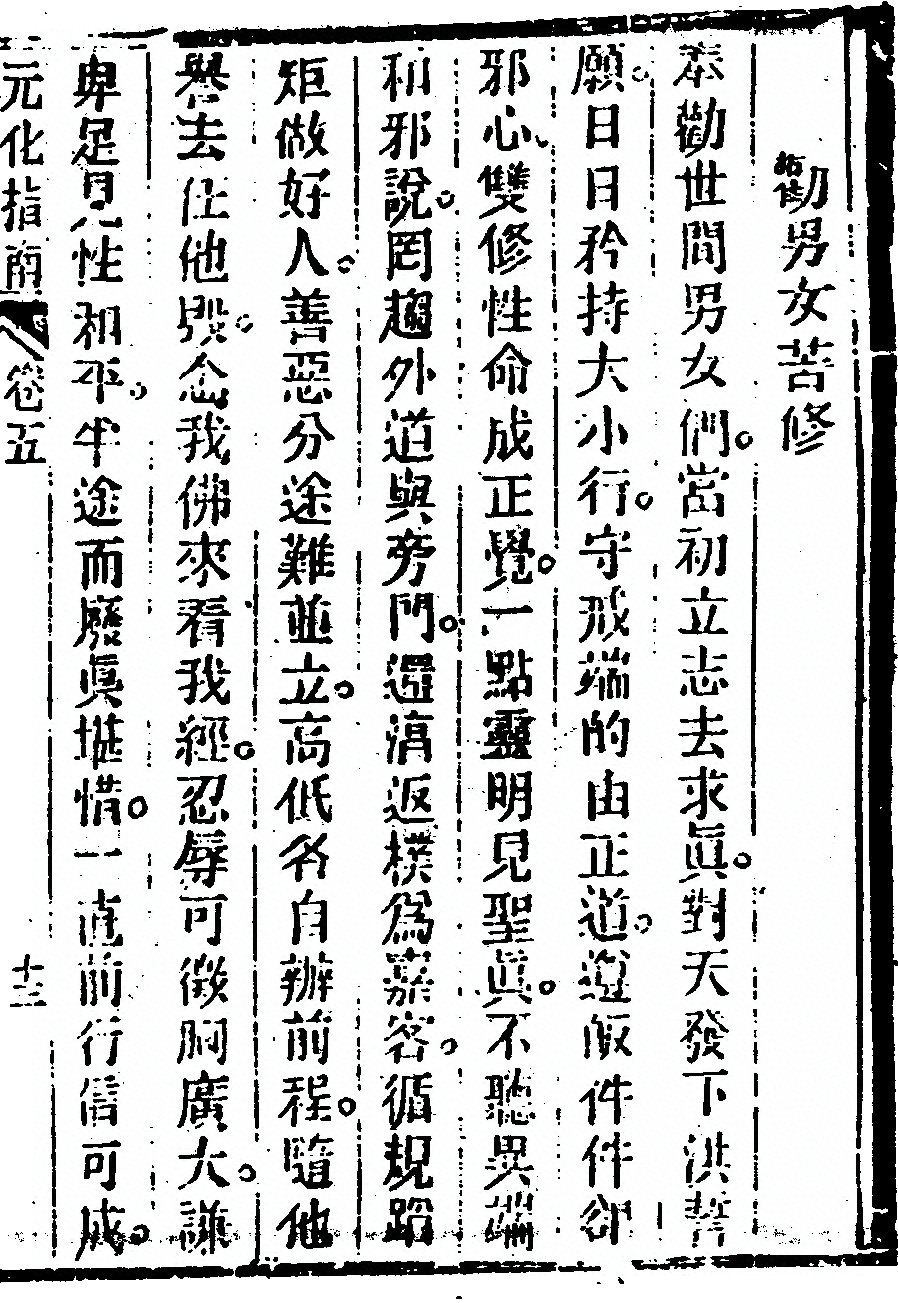 勸男女苦修
奉勸世間男女們。當初立志去求眞。對天發下洪誓
願。日日矜持大小行。守戒端的由正道。遵皈件件卻
邪心。雙修性命成正覺。一點靈明見聖眞。不聽異端
和邪說。罔趨外道與旁門。還淳返樸爲嘉客。循規蹈
矩做好人。善惡分途難並立。高低各自辦前程。隨他
譽去任他毀。念我佛來看我經。忍辱可徵胸廣大。謙
卑足見性和平。半途而廢眞堪惜。一直前行信可成。
元化指南 卷五 十三